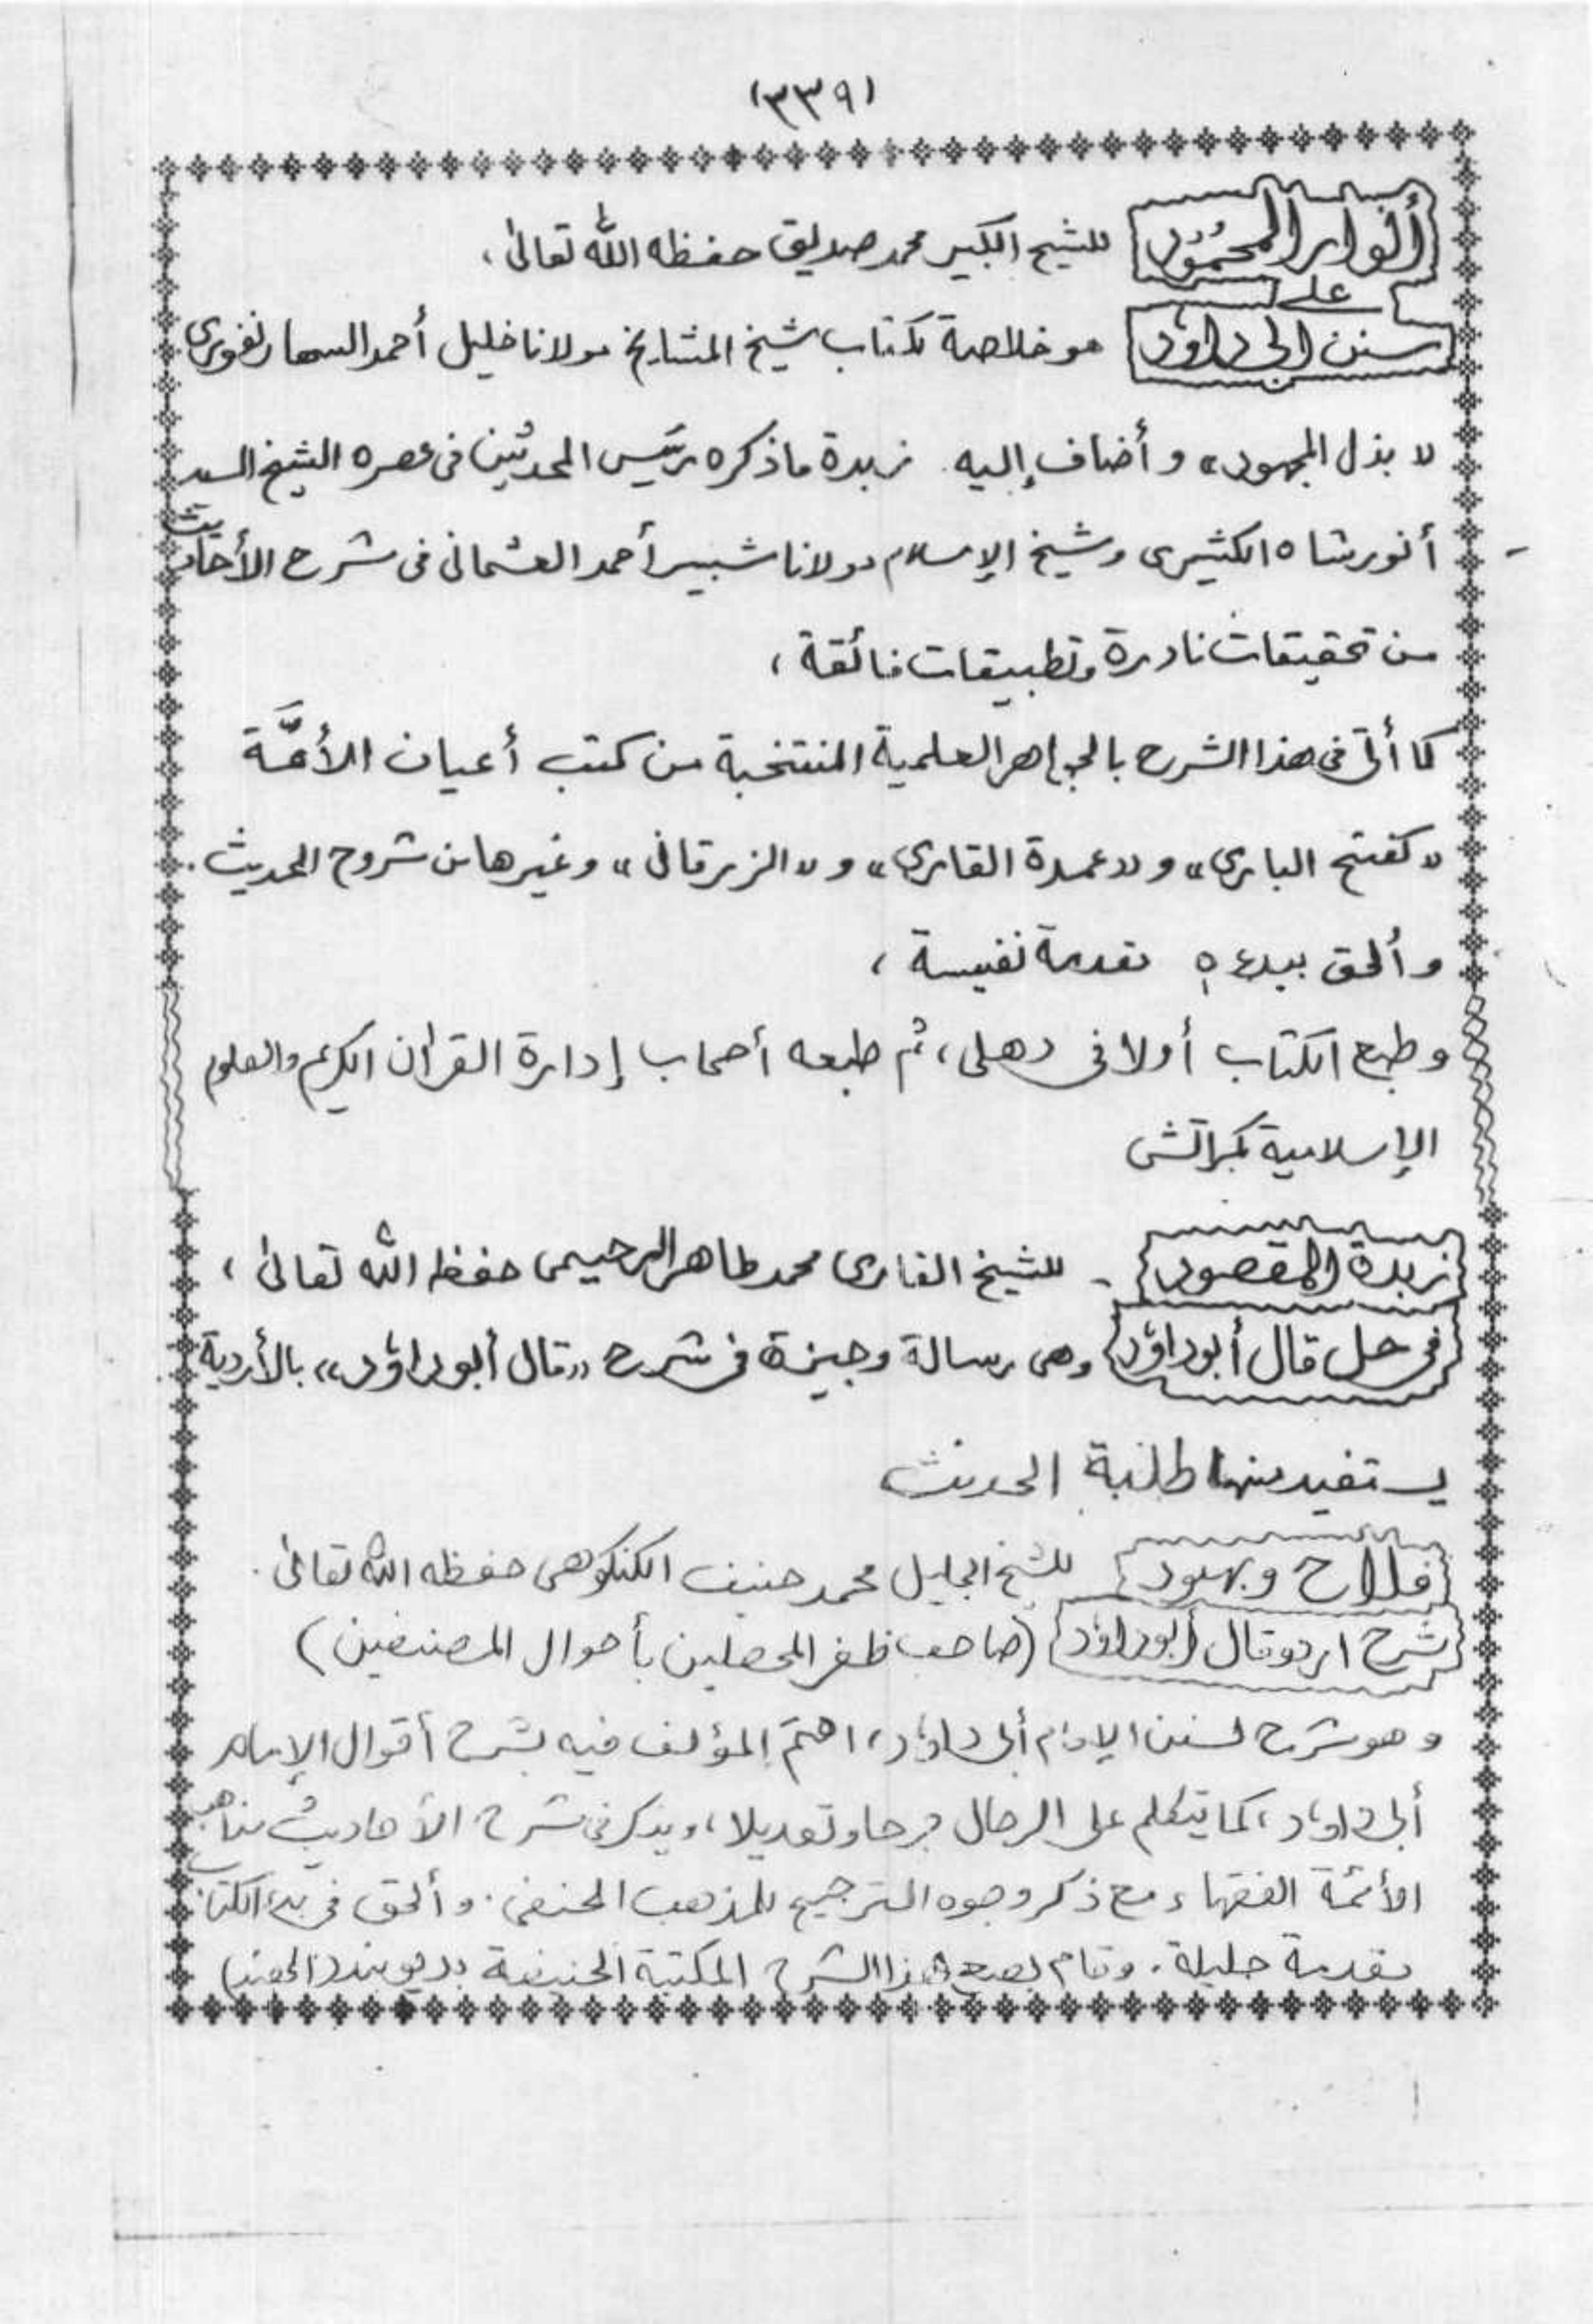 (٣٣٩)
أنوار المحمُود للشيخ الكبير محمد صديق حفظه الله تعالىٰ،
على
سنن ابى داؤد هو خلاصة لكتاب شيخ المشايخ مولانا خليل أحمد السهارنفوري
«بذل المجهود» وأضاف إليه زبدة ماذكره رئيس المحدثين فى عصره الشيخ السيد
أنور شاه الكشيرى وشيخ الإسلام مولانا شبير أحمد العثمانى فى شرح الأحاديث
من تحقيقات نادرة وتطبيقات فائقة،
كما أتى فى هذا الشرح بالجواهر العلمية المنتخبة من كتب أعيان الأئمَّة
«كفتح البارى» و«عمدة القارى» و«الزرقانى» وغيرها من شروح الحديث.
وألحق ببدءه مقدمة نفيسة،
وطبع الكتاب أولا فى دهلى، ثم طبعه أصحاب إدارة القرآن الكريم والعلوم
الإسلامية بكراتشى
زبدة المقصود - للشيخ القارى محمد طاهر الرحيمى حفظه الله تعالىٰ،
فى حل قال أبوداؤد وهى رسالة وجيزة فى شرح «قال أبوداؤد» بالأردية
يستفيد منها طلبة الحديث
فلاح وبهبود للشيخ الجليل محمد حنيف الكنكوهى حفظه الله تعالىٰ.
شرح اردو قال أبوداؤد (صاحب ظفر المحصلين بأحوال المصنفين)
وهو شرح لسنن الإمام أبى داؤد، اهتمّ المؤلف فيه بشرح أقوال الإمام
أبى داؤد، كما يتكلم على الرجال جرحا وتعديلا، ويذكر فى شرح الأحاديث مذاهب
الأئمة الفقهاء مع ذكر وجوه الترجيح للمذهب الحنفى. وألحق فى بدء الكتاب
مقدمة جليلة. وقام بطبع هذا الشرح المكتبة الحنيفية بديوبند (الهند)